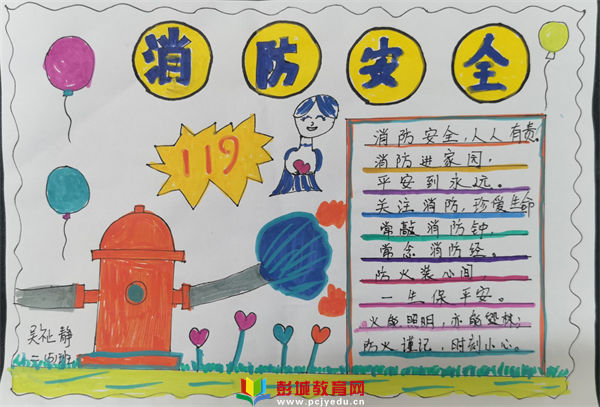 消防安全
119
消防安全,人人有责。
消防进家园,
平安到永远。
关注消防,珍爱生命
常敲消防钟,
常念消防经。
防火装心间,
一生保平安。
火能照明,亦能毁林;
防火谨记,时刻小心。
吴祉静
彭城教育网
www.pcjyedu.cn